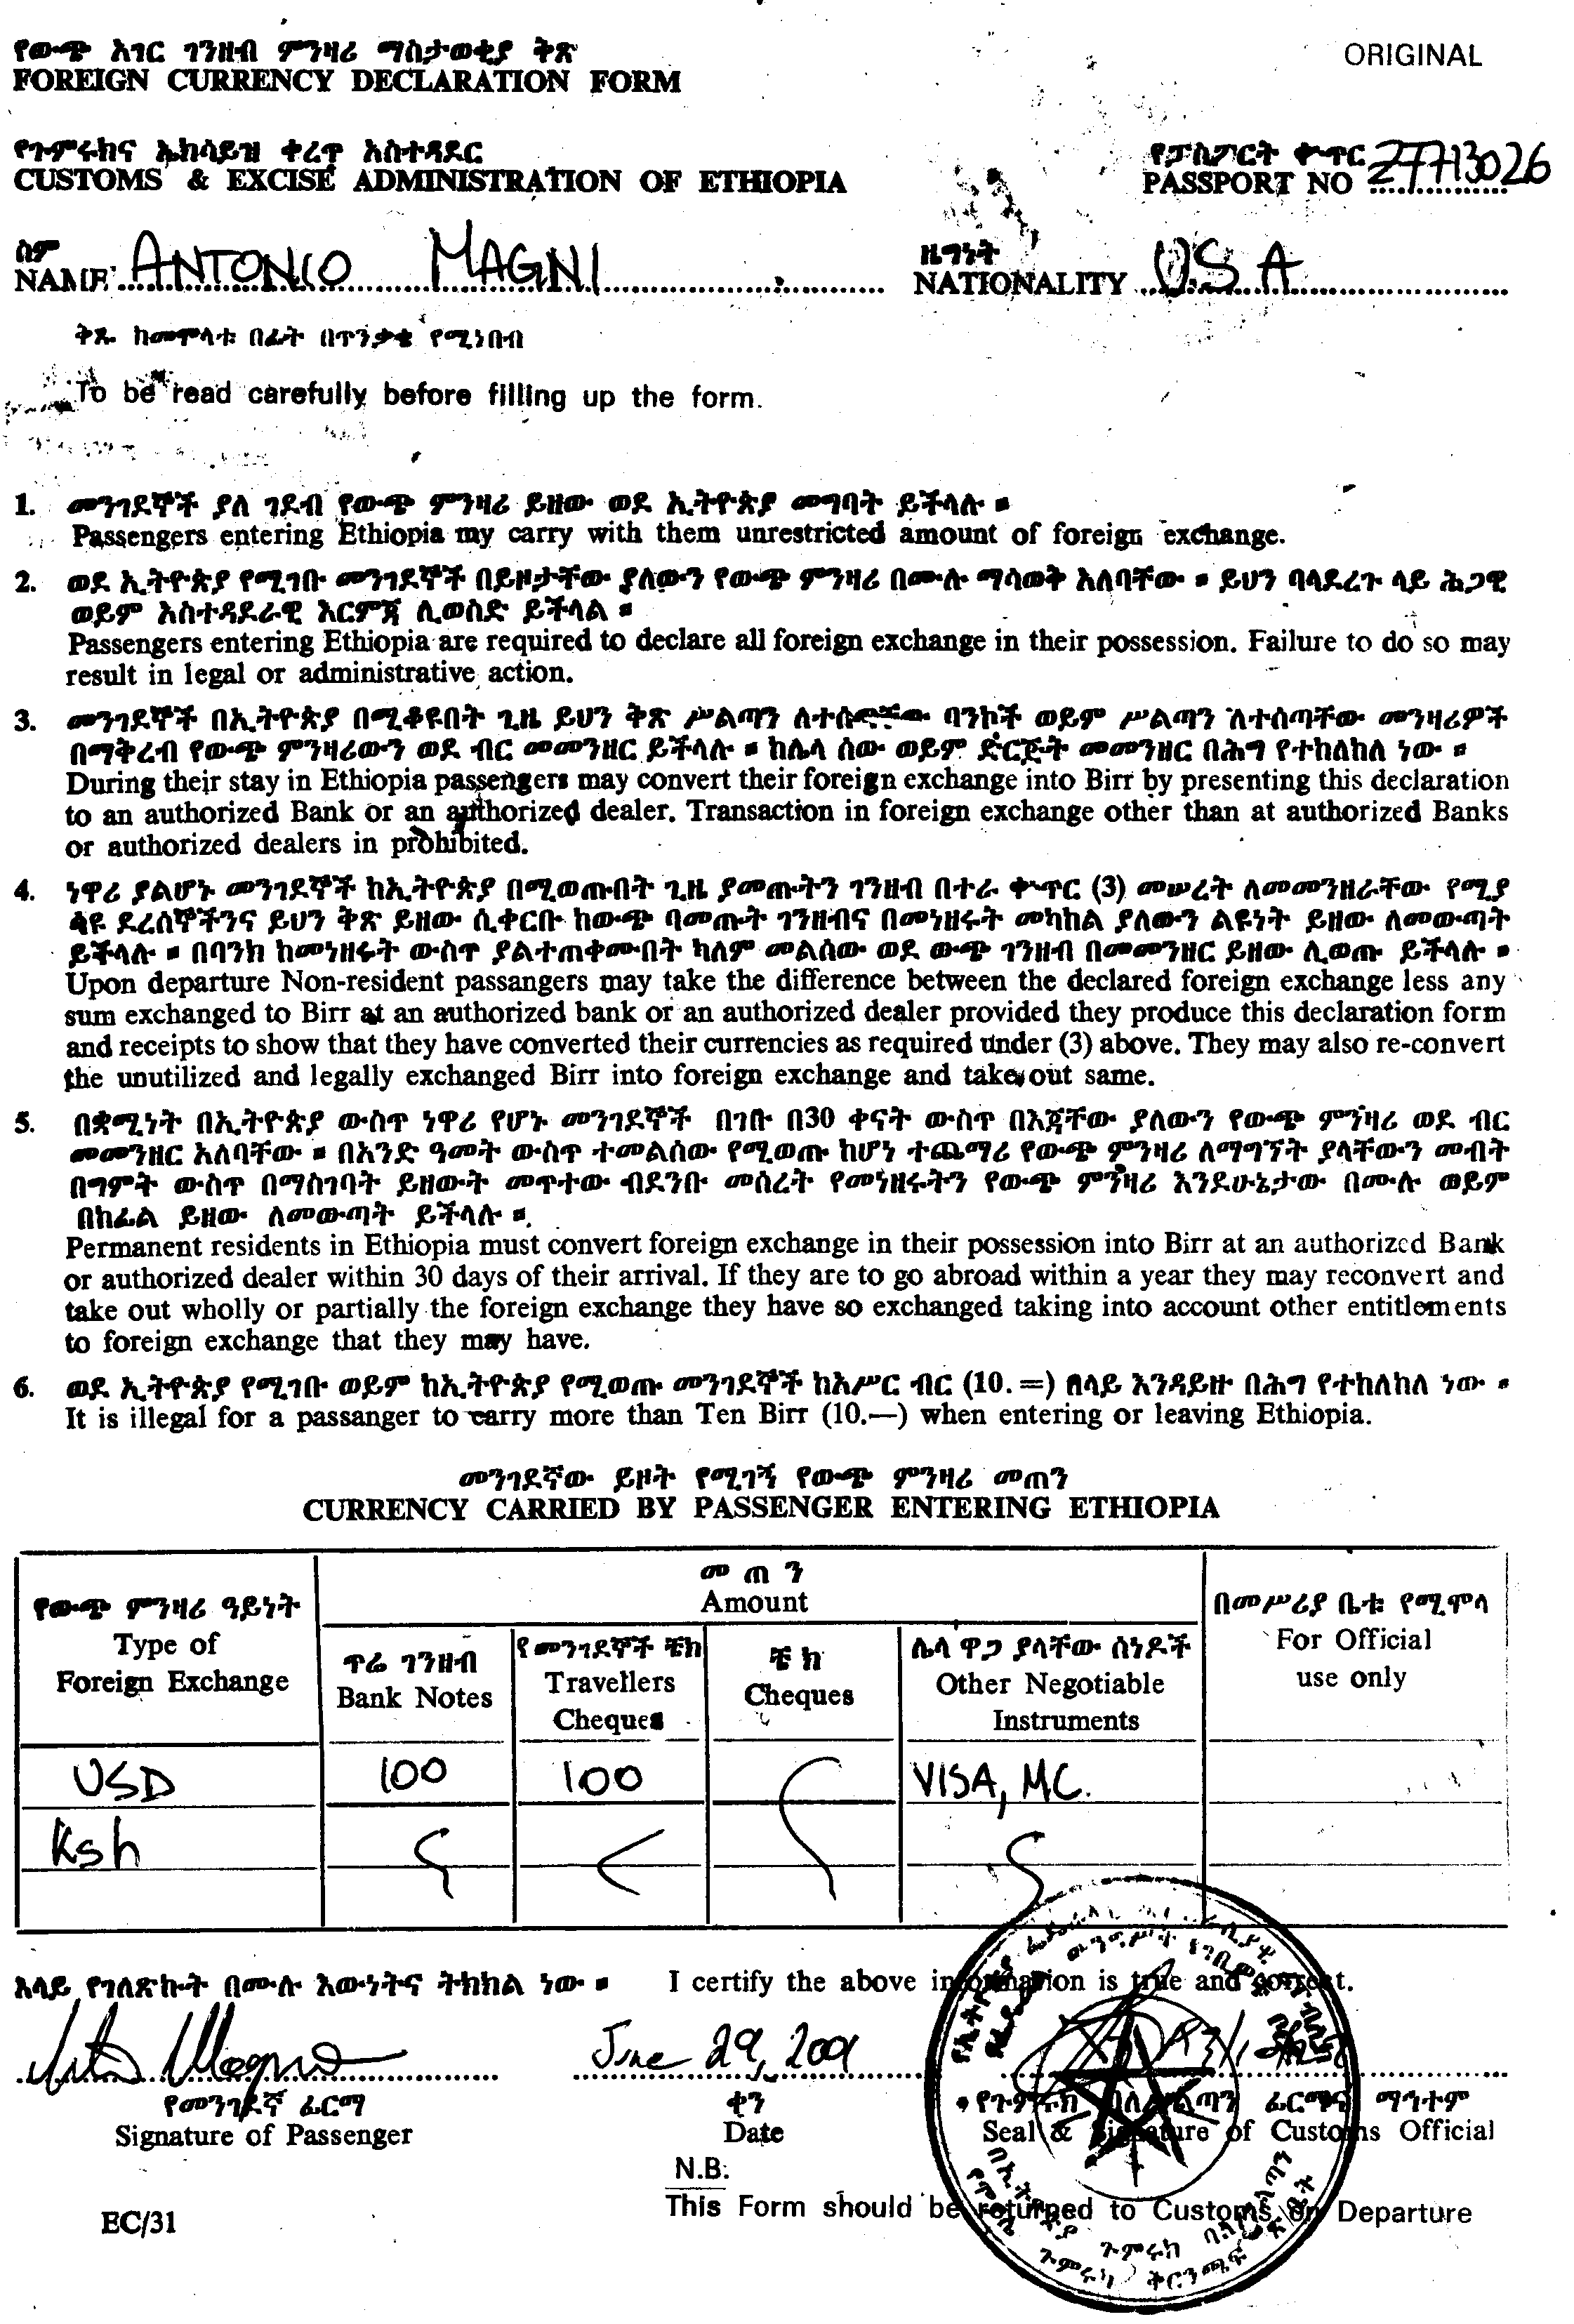 የውጭ አገር ገንዘብ ምንዛሪ ማስታወቂያ ቅጽ
ORIGINAL
FOREIGN CURRENCY DECLARATION FORM
የጉምሩክና ኤክሳይዝ ቀረጥ አስተዳደር
CUSTOMS & EXCISE ADMINISTRATION OF ETHIOPIA
የፓስፖርት ቍጥር
PASSPORT NO Z7713026
ስም
NAME ANTONIO MAGNI
ዜግነት
NATIONALITY USA
ቅጹ ከመሞላቱ በፊት በጥንቃቄ የሚነበብ
To be read carefully before filling up the form.
1. መንገደኞች ያለ ገደብ የውጭ ምንዛሪ ይዘው ወደ ኢትዮጵያ መግባት ይችላሉ ።
Passengers entering Ethiopia my carry with them unrestricted amount of foreign exchange.
2. ወደ ኢትዮጵያ የሚገቡ መንገደኞች በይዞታቸው ያለውን የውጭ ምንዛሪ በሙሉ ማሳወቅ አለባቸው ። ይህን ባላደረጉ ላይ ሕጋዊ
ወይም አስተዳደራዊ እርምጃ ሊወስድ ይችላል ።
Passengers entering Ethiopia are required to declare all foreign exchange in their possession. Failure to do so may
result in legal or administrative action.
3. መንገደኞች በኢትዮጵያ በሚቆዩበት ጊዜ ይህን ቅጽ ሥልጣን ለተሰጣቸው ባንኮች ወይም ሥልጣን ለተሰጣቸው መንዛሪዎች
በማቅረብ የውጭ ምንዛሪውን ወደ ብር መመንዘር ይችላሉ ። ከሌላ ሰው ወይም ድርጅት መመንዘር በሕግ የተከለከለ ነው ።
During their stay in Ethiopia passengers may convert their foreign exchange into Birr by presenting this declaration
to an authorized Bank or an authorized dealer. Transaction in foreign exchange other than at authorized Banks
or authorized dealers in prohibited.
4. ነዋሪ ያልሆኑ መንገደኞች ከኢትዮጵያ በሚወጡበት ጊዜ ያመጡትን ገንዘብ በተራ ቍጥር (3) መሠረት ለመመንዘራቸው የሚያ
ሳዩ ደረሰኞችንና ይህን ቅጽ ይዘው ሲቀርቡ ከውጭ ባመጡት ገንዘብና በመነዘሩት መካከል ያለውን ልዩነት ይዘው ለመውጣት
ይችላሉ ። በባንክ ከመነዘሩት ውስጥ ያልተጠቀሙበት ካለም መልሰው ወደ ውጭ ገንዘብ በመመንዘር ይዘው ሊወጡ ይችላሉ ።
Upon departure Non-resident passangers may take the difference between the declared foreign exchange less any
sum exchanged to Birr at an authorized bank or an authorized dealer provided they produce this declaration form
and receipts to show that they have converted their currencies as required under (3) above. They may also re-convert
the unutilized and legally exchanged Birr into foreign exchange and take out same.
5. በቋሚነት በኢትዮጵያ ውስጥ ነዋሪ የሆኑ መንገደኞች በገቡ በ30 ቀናት ውስጥ በእጃቸው ያለውን የውጭ ምንዛሪ ወደ ብር
መመንዘር አለባቸው ። በአንድ ዓመት ውስጥ ተመልሰው የሚወጡ ከሆነ ተጨማሪ የውጭ ምንዛሪ ለማግኘት ያላቸውን መብት
በግምት ውስጥ በማስገባት ይዘውት መጥተው ብደንቡ መሰረት የመነዘሩትን የውጭ ምንዛሪ እንደሁኔታው በሙሉ ወይም
በከፊል ይዘው ለመውጣት ይችላሉ ።
Permanent residents in Ethiopia must convert foreign exchange in their possession into Birr at an authorized Bank
or authorized dealer within 30 days of their arrival. If they are to go abroad within a year they may reconvert and
take out wholly or partially the foreign exchange they have so exchanged taking into account other entitlements
to foreign exchange that they may have.
6. ወደ ኢትዮጵያ የሚገቡ ወይም ከኢትዮጵያ የሚወጡ መንገደኞች ከአሥር ብር (10.=) በላይ እንዳይዙ በሕግ የተከለከለ ነው ።
It is illegal for a passanger to carry more than Ten Birr (10.—) when entering or leaving Ethiopia.
መንገደኛው ይዞት የሚገኝ የውጭ ምንዛሪ መጠን
CURRENCY CARRIED BY PASSENGER ENTERING ETHIOPIA
የውጭ ምንዛሪ ዓይነት
Type of
Foreign Exchange
መ ጠ ን
Amount
በመሥሪያ ቤቱ የሚሞላ
For Official
use only
ጥሬ ገንዘብ
Bank Notes
የመንገደኞች ቼክ
Travellers
Cheques
ቼ ክ
Cheques
ሌላ ዋጋ ያላቸው ሰነዶች
Other Negotiable
Instruments
USD 100 100 VISA, MC.
Ksh
እላይ የገለጽኩት በሙሉ እውነትና ትክክል ነው ። I certify the above information is true and correct.
June 29, 2001
የመንገደኛ ፊርማ
Signature of Passenger
ቀን
Date
የጉምሩክ ባለሥልጣን ፊርማና ማኅተም
Seal & Signature of Customs Official
N.B:
This Form should be returned to Customs on Departure
EC/31